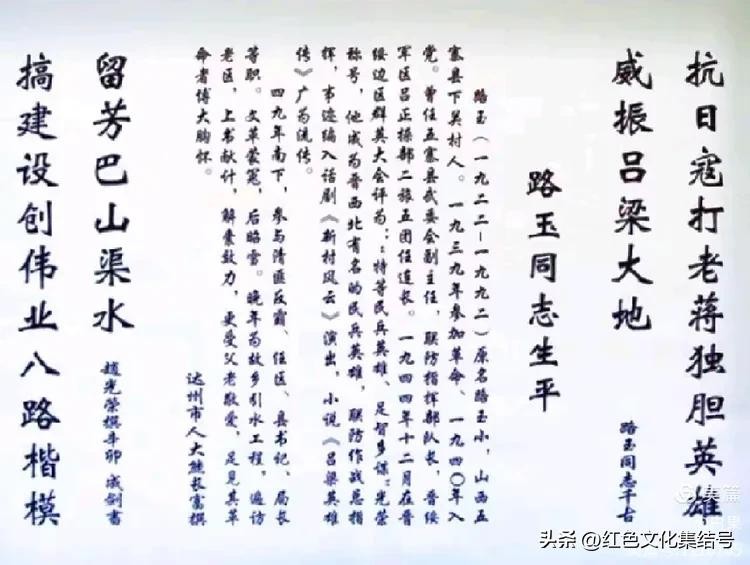 抗日寇打老蒋独胆英雄
威振吕梁大地
路玉同志千古
路玉同志生平
路玉（一九二二－一九九二）原名路玉小，山西五
寨县下吴村人。一九三九年参加革命、一九四〇年入
党。曾任五寨县武委会副主任，联防指挥部队长，晋绥
军区吕正操部二旅五团任连长。一九四四年十二月在晋
绥边区群英大会评为：：特等民兵英雄、足智多谋。光荣
称号，他成为晋西北有名的民兵英雄，联防作战总指
挥，事迹编入话剧《新村风云》演出，小说《吕梁英雄
传》广为流传。
四九年南下，参与清匪反霸、任区、县书记、局长
等职。文革蒙冤，后昭雪。晚年为故乡引水工程，遍访
老区，上书献计，解囊致力，更受父老敬爱，足见其革
命者博大胸怀。
达州市人大熊长富撰
留芳巴山渠水
赵光荣撰辛卯 成剑书
搞建设创伟业八路楷模
美篇
头条 @红色文化集结号